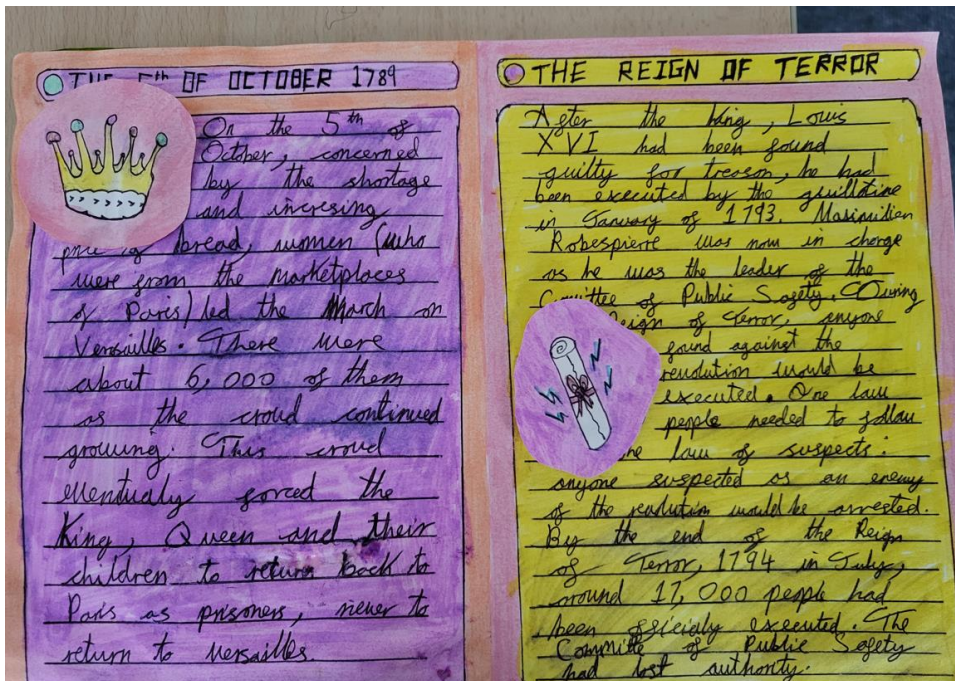 THE 5th OF OCTOBER 1789
On the 5th of
October, concerned
by the shortage
and incresing
price of bread, women (who
were from the marketplaces
of Paris) led the March on
Versailles. There were
about 6,000 of them
as the croud continued
growing. This croud
eventually forced the
King, Queen and their
children to return back to
Paris as prisoners, never to
return to Versailles.
THE REIGN OF TERROR
After the king, Louis
XVI had been found
guilty for treason, he had
been executed by the guillotine
in January of 1793. Maximilien
Robespierre was now in charge
as he was the leader of the
Comittee of Public Safety. During
Reign of Terror, anyone
found against the
revolution would be
executed. One law
people needed to follow
law of suspects:
anyone suspected as an enemy
of the revolution would be arrested.
By the end of the Reign
of Terror, 1794 in July,
around 17,000 people had
been officialy executed. The
Committe of Public Safety
had lost authority.